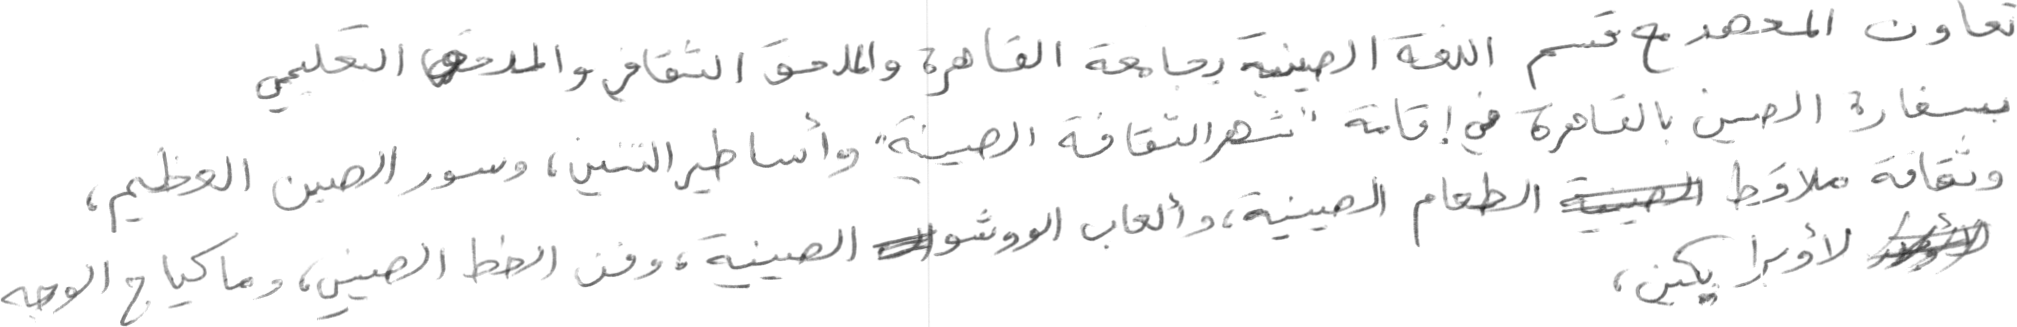 تعاون المعهد مع قسم اللغة الصينية بجامعة القاهرة والملحق الثقافي والملحق التعليمي
بسفارة الصين بالقاهرة في إقامة "شهر الثقافة الصينية" وأساطير التنين، وسور الصين العظيم،
وثقافة ملاقط الطعام الصينية، وألعاب الووشو الصينية، وفن الخط الصيني، وماكياج الوجه
لأوبرا بكين،